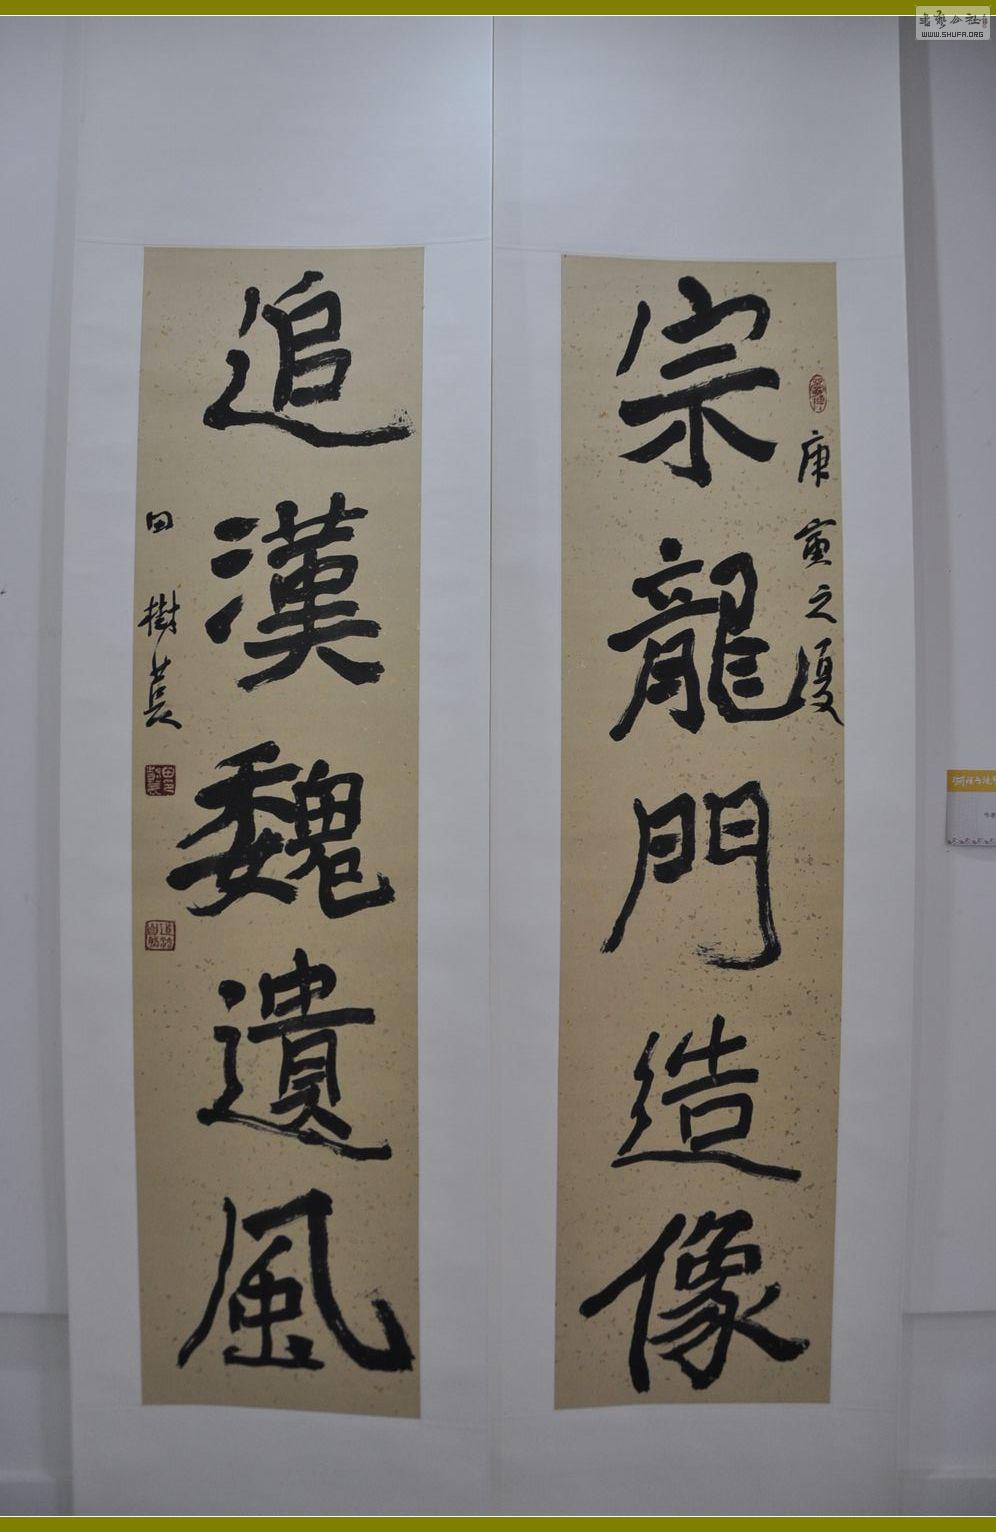 宗龍門造像
庚寅之夏
追漢魏遺風
田樹萇
WWW.SHUFA.ORG